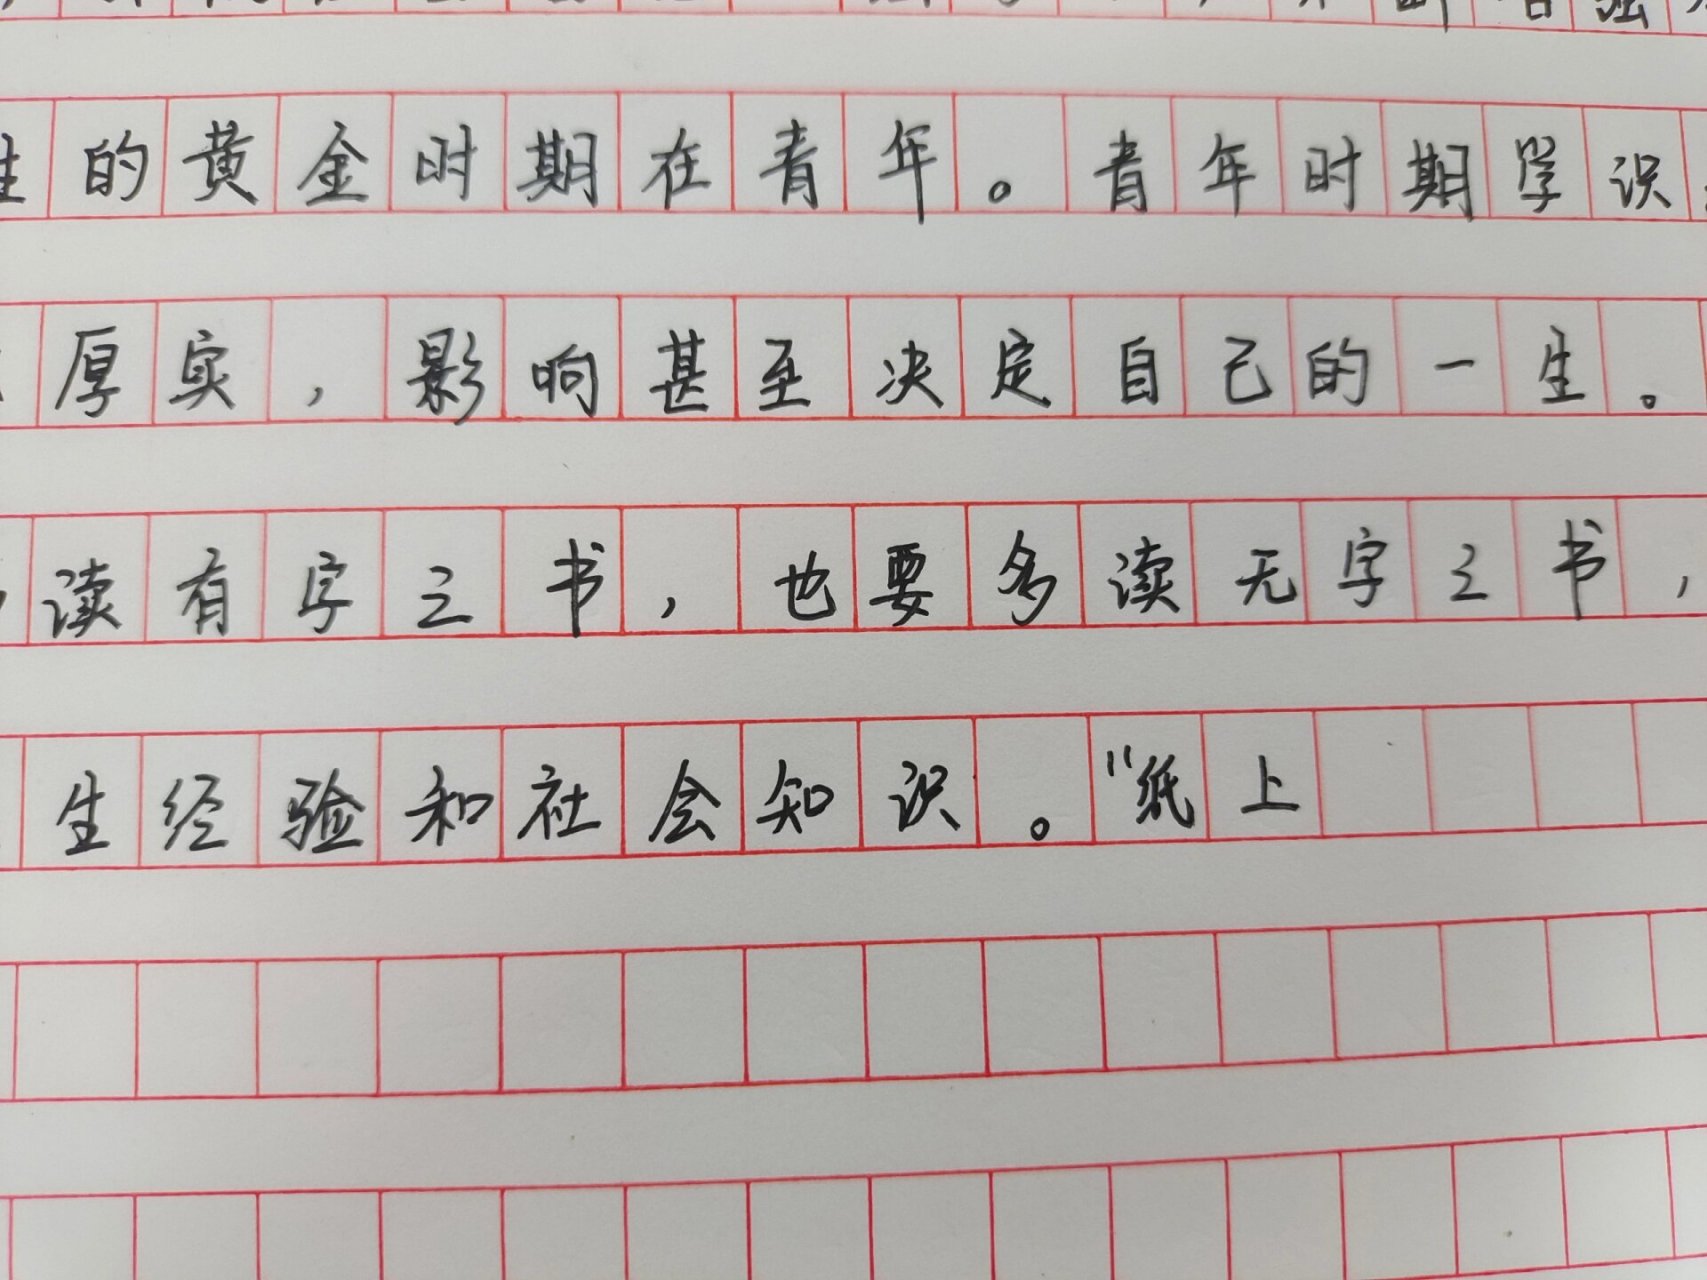 的黄金时期在青年。青年时期学识
厚实，影响甚至决定自己的一生。
读有字之书，也要多读无字之书，
生经验和社会知识。“纸上